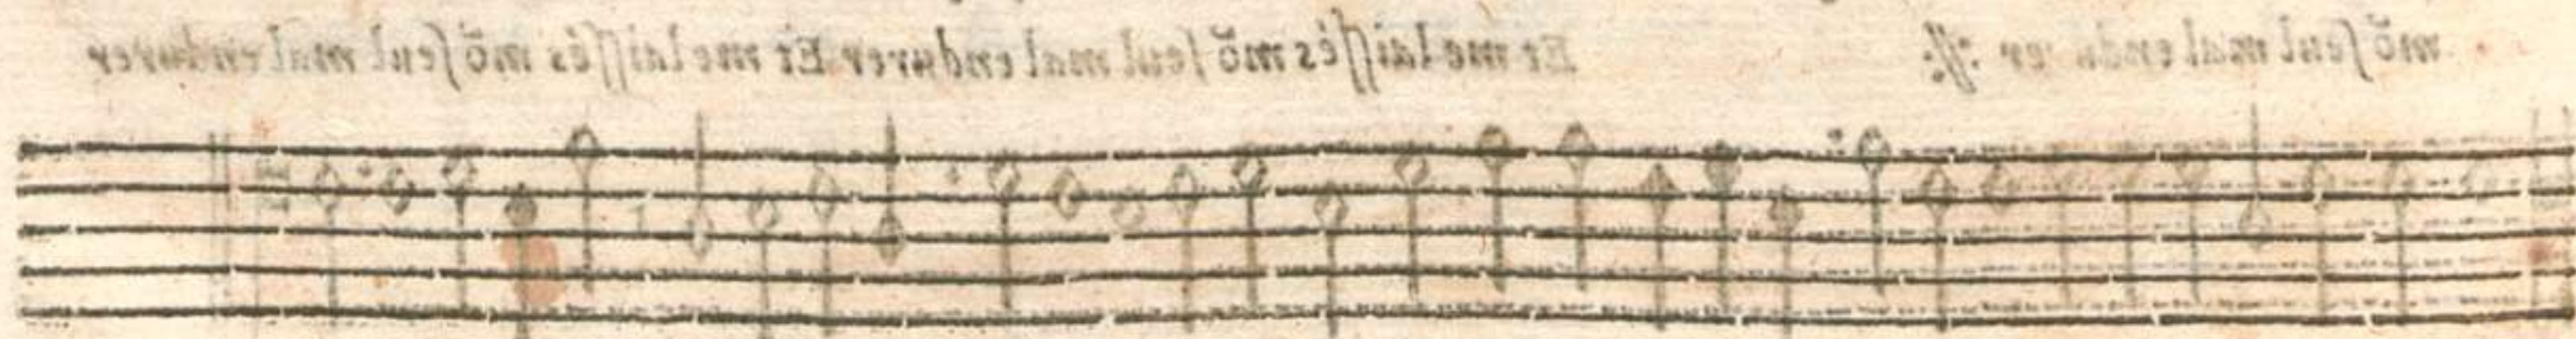 mõ seul mal endu rer :ij: Et me laissés mõ seul mal endurer Et me laissés mõ seul mal endurer